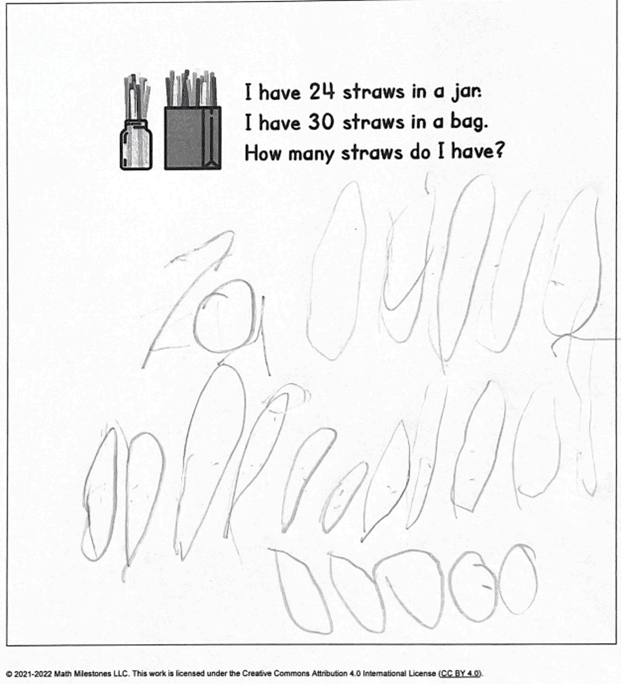 I have 24 straws in a jar.
I have 30 straws in a bag.
How many straws do I have?
© 2021-2022 Math Milestones LLC. This work is licensed under the Creative Commons Attribution 4.0 International License (CC BY 4.0).